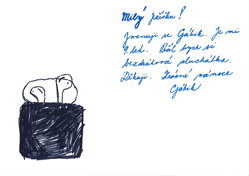 Milý ježíšku!
Jmenuji se Gábík. Je mi
9 let. Přál bych si
bezdrátová sluchátka.
Děkuji. Krásné vánoce
Gábík